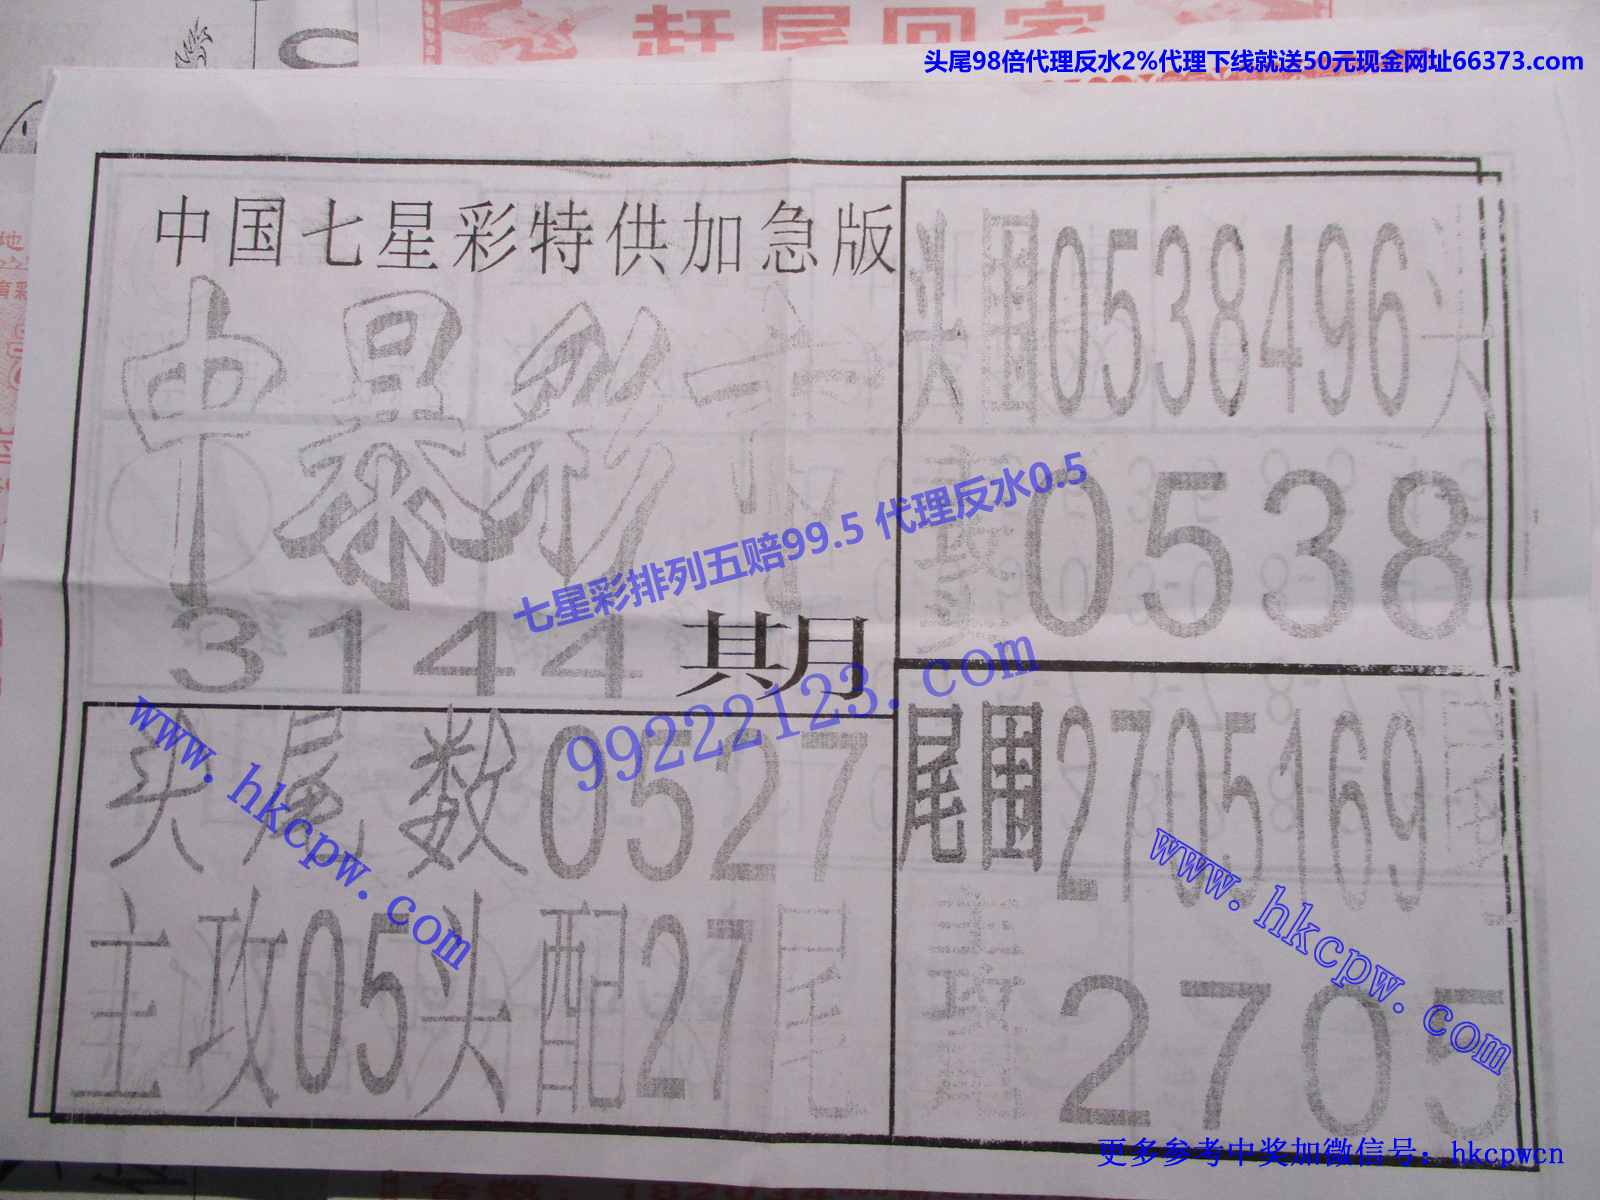 赶尾回家
头尾98倍代理反水2%代理下线就送50元现金网址66373.com
中国七星彩特供加急版
3144 期
头尾数0527
主攻05头配27尾
头围0538496头
主攻头0538
尾围2705169尾
主攻尾2705
七星彩排列五赔99.5 代理反水0.5
99222123.com
www.hkcpw.com
www.hkcpw.com
更多参考中奖加微信号：hkcpwcn